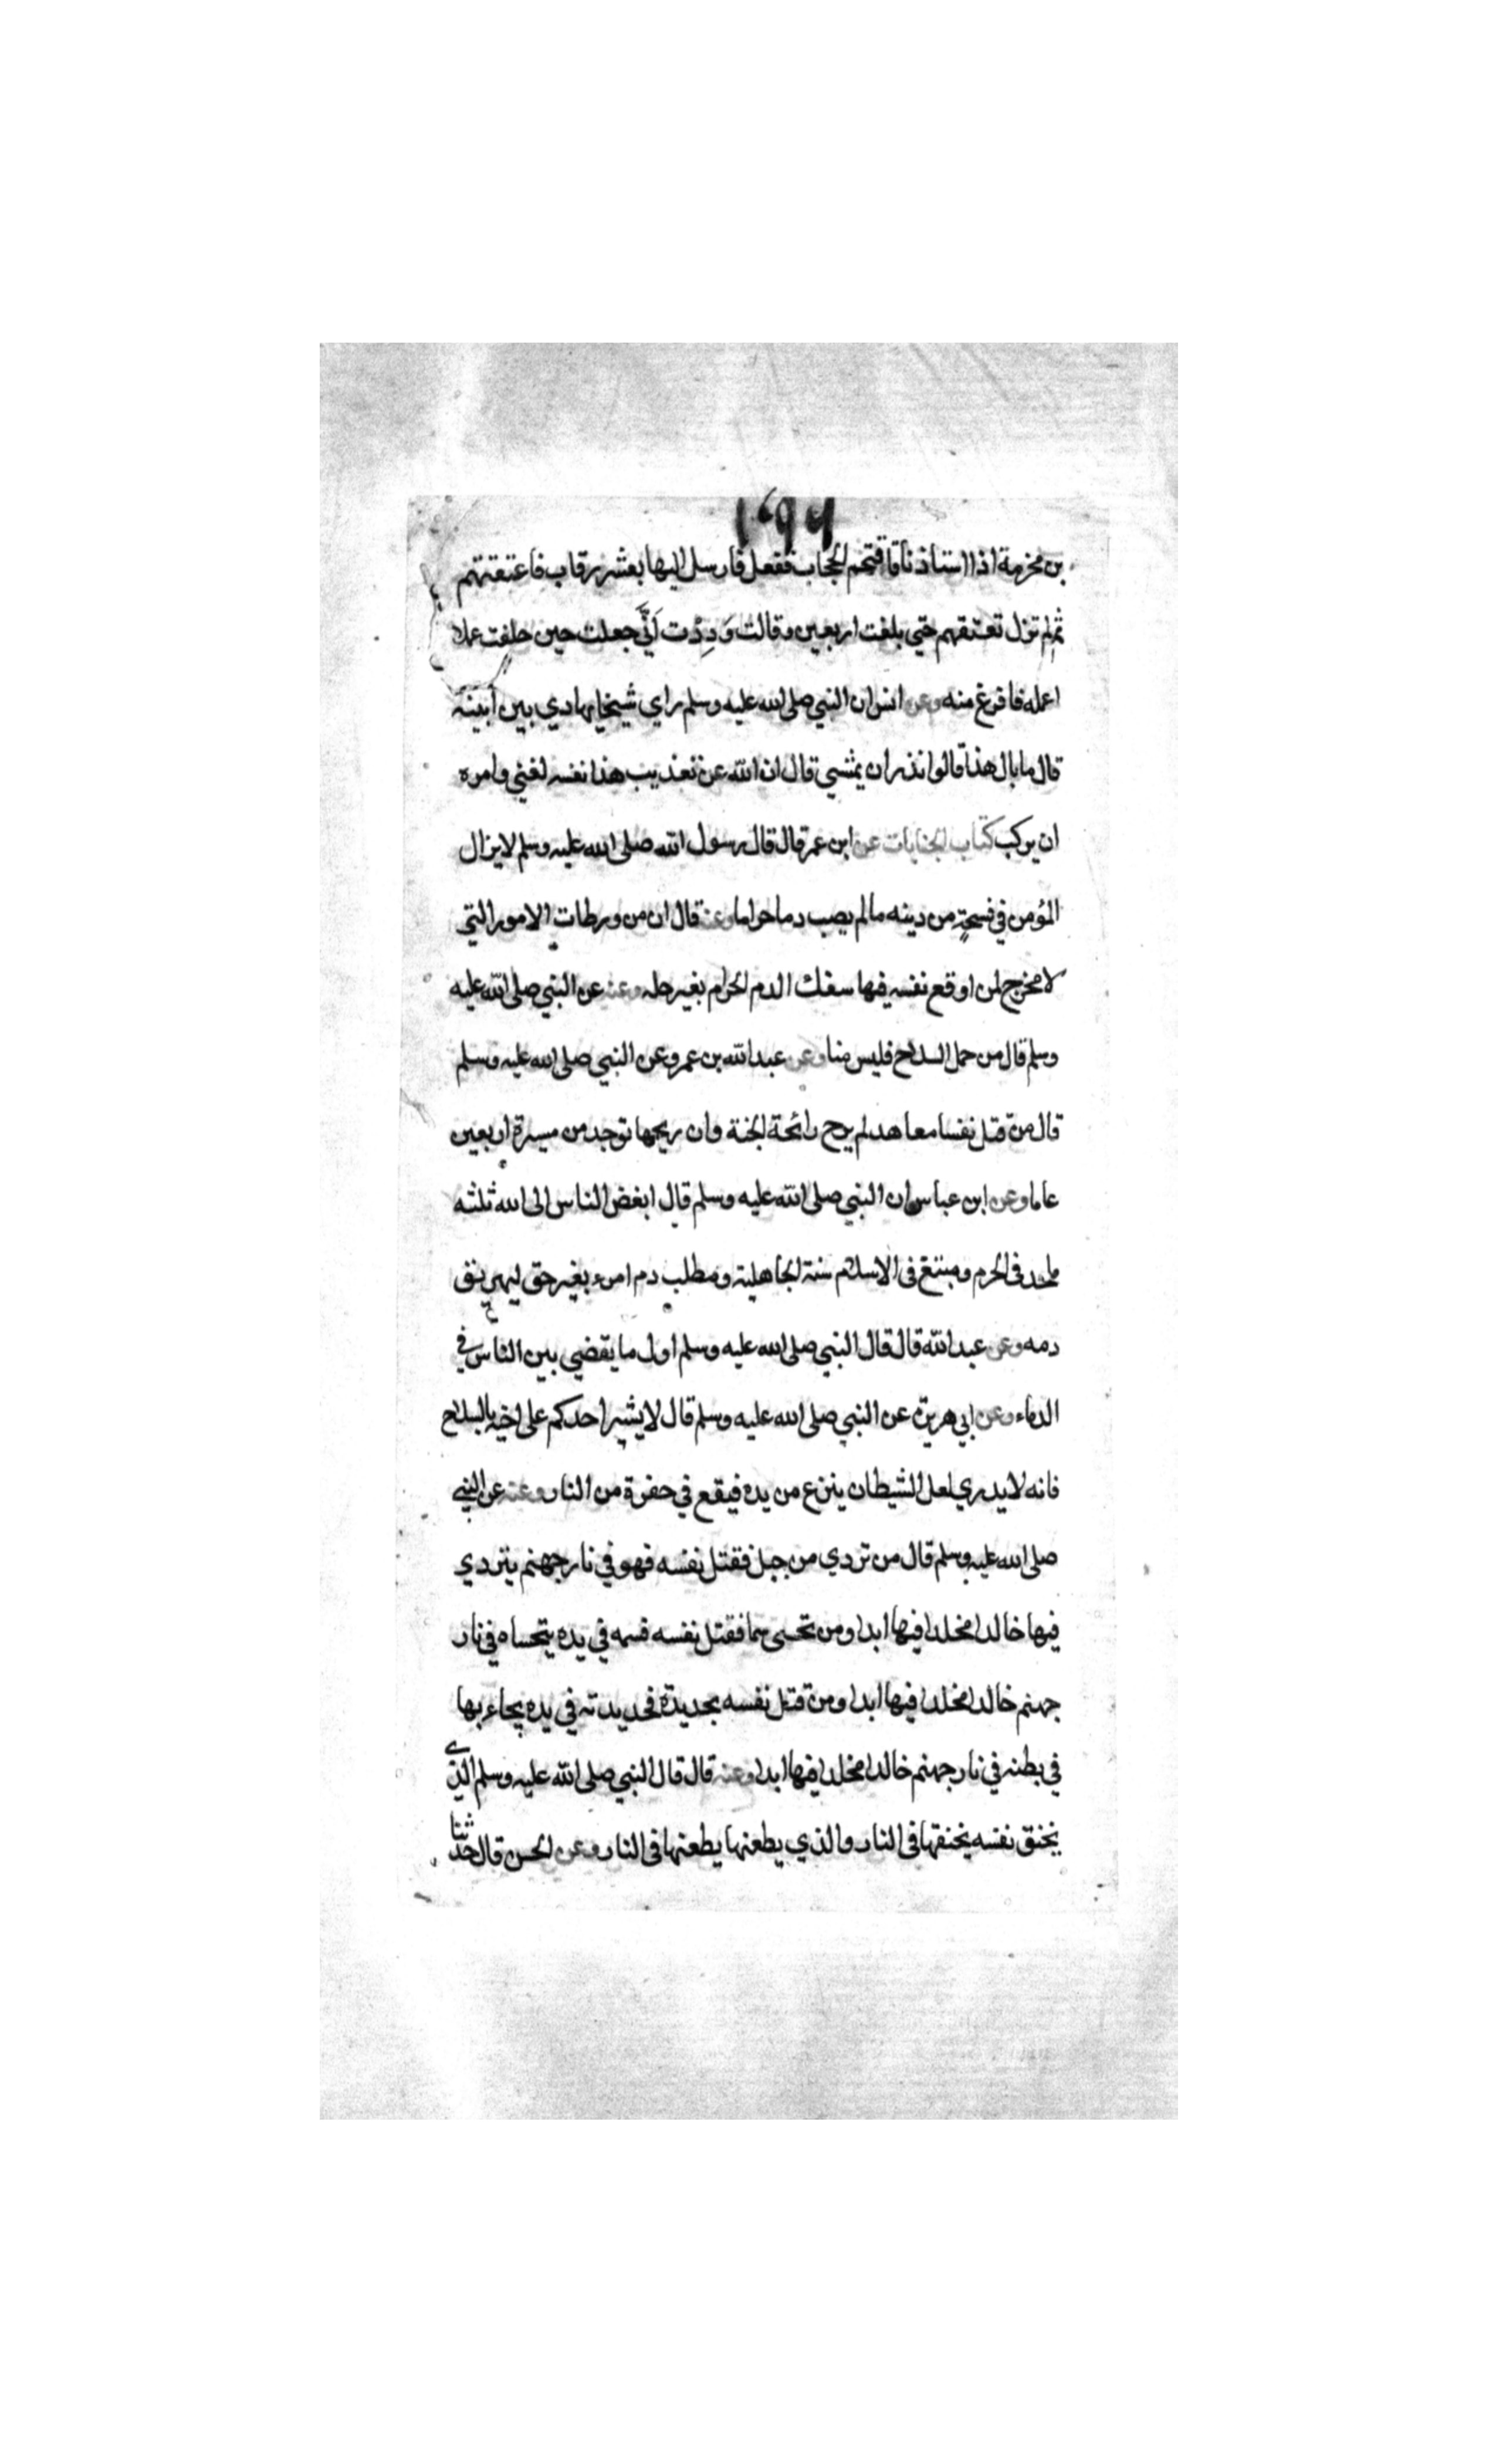 ١٤٩٧
بن مخرمة اذا استاذنا فاقتحم الحجاب ففعل فارسل اليها بعشر رقاب فاعتقتهم
ثم لم تزل تعتقهم حتي بلغت اربعين وقالت وَدِدْت اَنّي جعلت حين حلفت عملا
اعمله فافرغ منه وعن انس ان النبي صلى الله عليه وسلم راي شيخا يهادي بين ابنيه
قال ما بال هذا قالوا نذر ان يمشي قال ان الله عن تعذيب هذا نفسه لغني وامره
ان يركب كتاب الجنايات عن ابن عمر قال قال رسول الله صلى الله عليه وسلم لا يزال
المؤمن في فسحةٍ من دينه مالم يصب دما حراما وعنه قال ان من ورطات الامور التي
لا مخرج لمن اوقع نفسه فيها سفك الدم الحرام بغير حله وعنه عن النبي صلى الله عليه
وسلم قال من حمل السلاح فليس منا وعن عبد الله بن عمرو عن النبي صلى الله عليه وسلم
قال من قتل نفسا معاهد لم يرح رائحة الجنة وان ريحها توجد من مسيرة اربعين
عاما وعن ابن عباس ان النبي صلى الله عليه وسلم قال ابغض الناس الى الله ثلثه
ملحد في الحرم ومبتغ في الاسلام سنة الجاهلية ومطلب دم امرء بغير حق ليهريق
دمه وعن عبد الله قال قال النبي صلى الله عليه وسلم اول ما يقضي بين الناس في
الدماء وعن ابي هريرة عن النبي صلى الله عليه وسلم قال لا يشير احدكم على اخيه بالسلاح
فانه لا يدري لعل الشيطان ينزع من يده فيقع في حفرة من النار وعنه عن النبي
صلى الله عليه وسلم قال من تردي من جبل فقتل نفسه فهو في نار جهنم يتردي
فيها خالدا مخلدا فيها ابدا ومن تحسى سما فقتل نفسه فسمه في يده يتحساه في نار
جهنم خالدا مخلدا فيها ابدا ومن قتل نفسه بحديدة فحديدته في يده يجاء بها
في بطنه في نار جهنم خالدا مخلدا فيها ابدا وعنه قال قال النبي صلى الله عليه وسلم الذي
يخنق نفسه يخنقها في النار والذي يطعنها يطعنها في النار وعن الحسن قال حدثنا